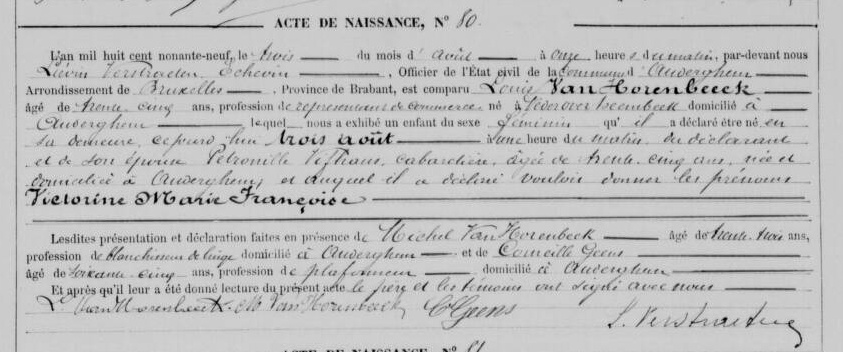 ACTE DE NAISSANCE, N° 80.
L'an mil huit cent nonante-neuf, le trois du mois d'août à onze heures du matin, par-devant nous
Liévin Verstraeten Echevin, Officier de l'État civil de la commune d'Auderghem
Arrondissement de Bruxelles, Province de Brabant, est comparu Louis Van Horenbeeck
âgé de trente cinq ans, profession de représentant de commerce né à Nederoverheembeek domicilié à
Auderghem lequel nous a exhibé un enfant du sexe féminin qu'il a déclaré être né en
sa demeure, ce jourd'hui trois août à une heure du matin, du déclarant
et de son épouse Petronille cabaretière, âgée de trente cinq ans, née et
domiciliée à Auderghem, et auquel il a déclaré vouloir donner les prénoms
Victorine Marie Françoise
Lesdites présentation et déclaration faites en présence de Michel Van Horenbeeck âgé de trente trois ans,
profession de blanchisseur de linge domicilié à Auderghem et de Corneille Geens
âgé de soixante cinq ans, profession de plafonneur domicilié à Auderghem
Et après qu'il leur a été donné lecture du présent acte le père et les témoins ont signé avec nous
L. Van Horenbeeck. M Van Horenbeeck C Geens L. Verstraeten
ACTE DE NAISSANCE, N° 81